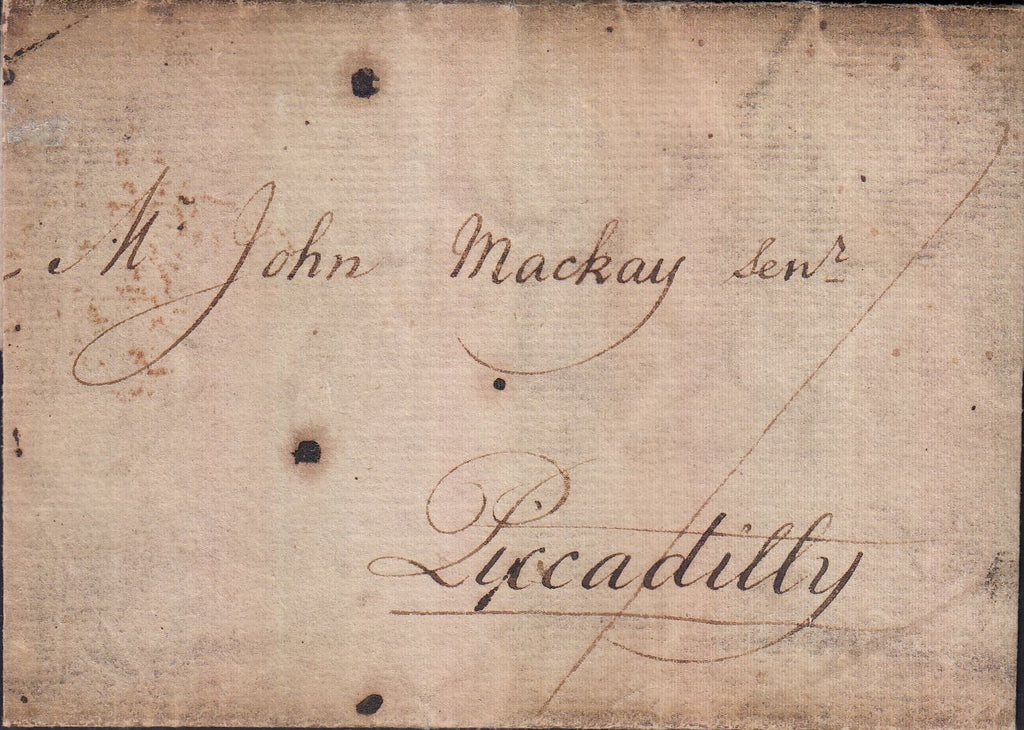 Mr John Mackay senr
Piccadilly